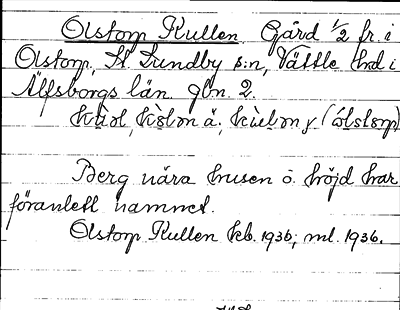 Olstorp Kullen Gård 1/2 fr. i
Olstorp, St. Lundby s:n, Vättle hd i
Älfsborgs län. gbn 2.
(ólstorp)
Berg nära husen o. höjd har
föranlett namnet.
Olstorp Kullen kb. 1936; ml. 1936.